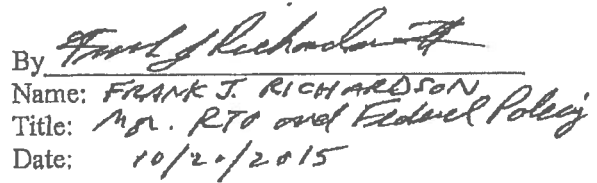 By Frank J Richardson III
Name: FRANK J. RICHARDSON
Title: Mgr. RTO and Federal Policy
Date: 10/20/2015